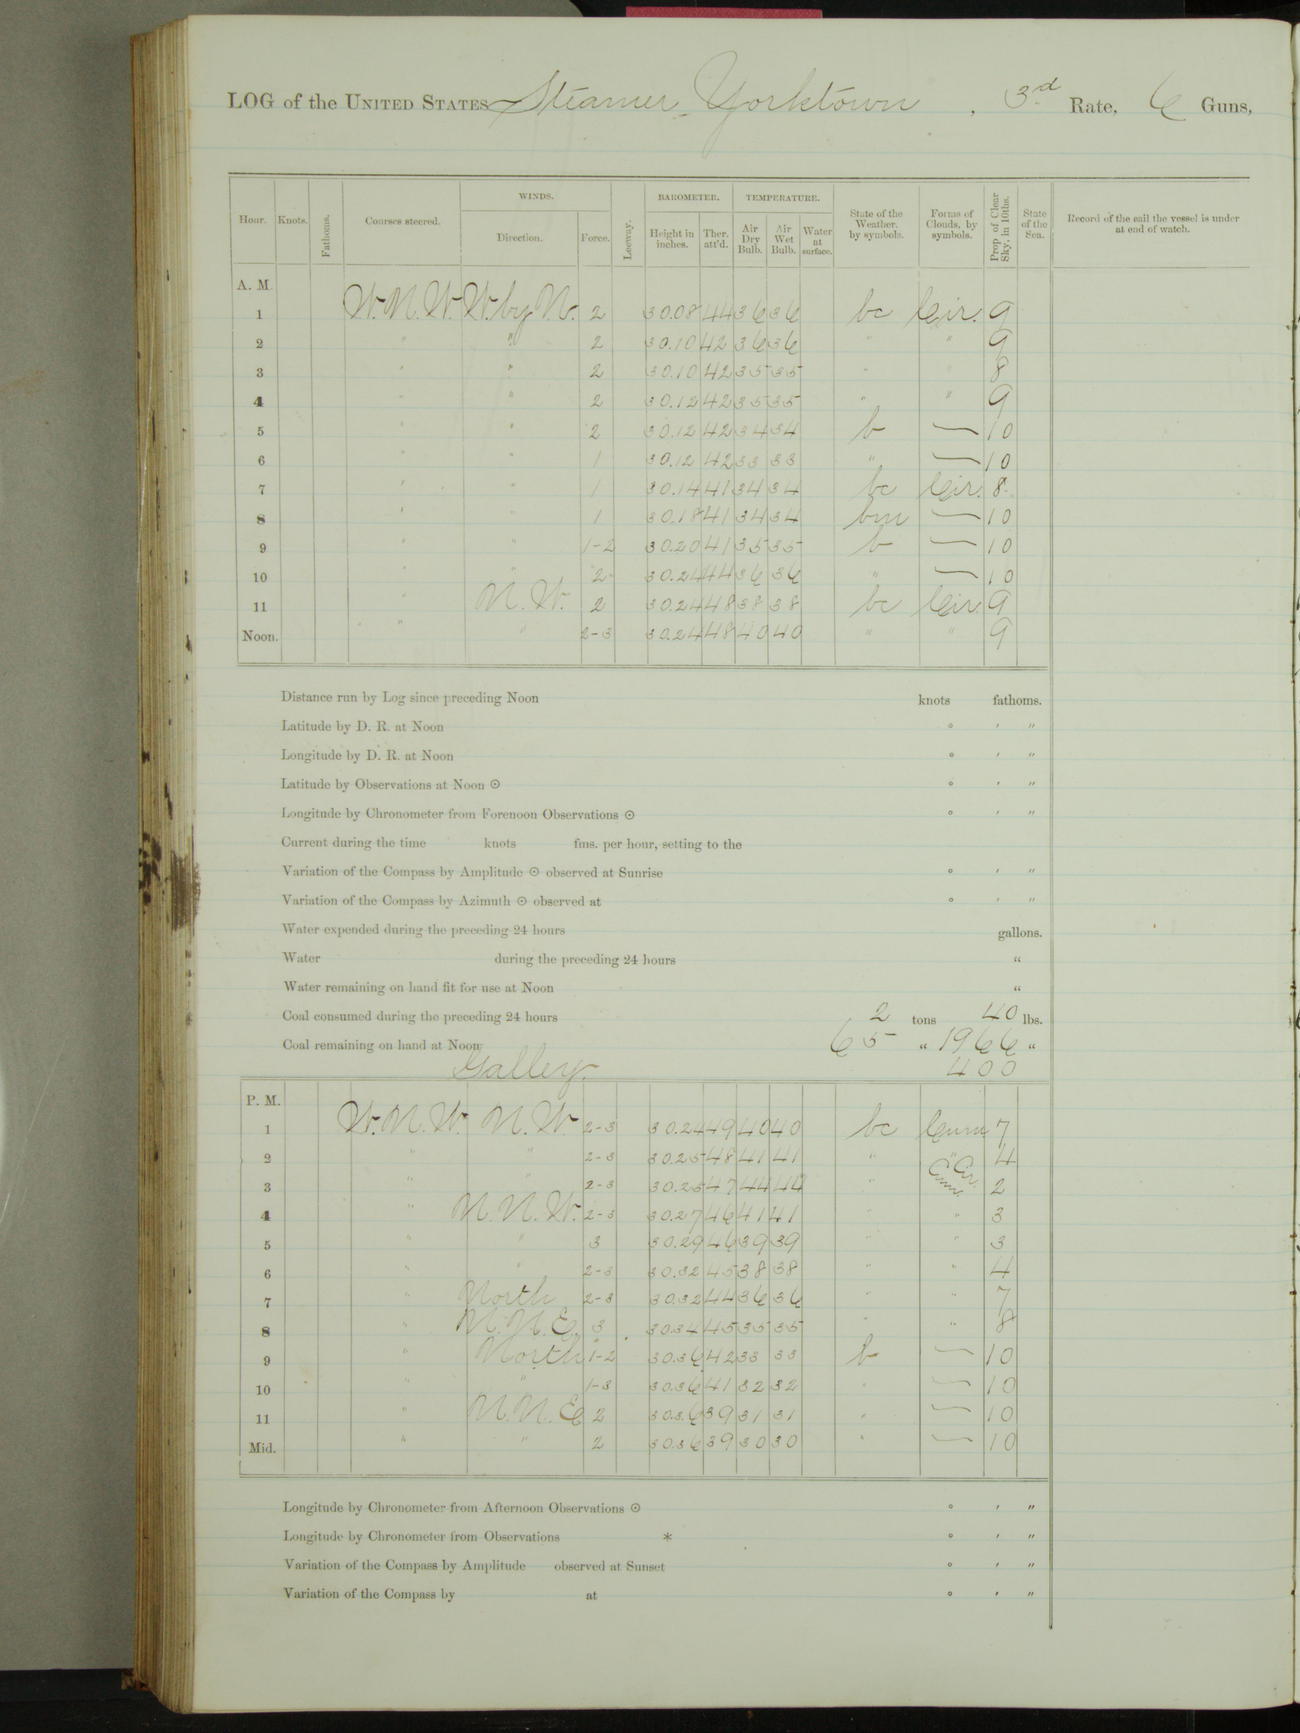 LOG of the UNITED STATES Steamer Yorktown, 3rd Rate, 6 Guns,
Hour. Knots. Fathoms. Courses steered. WINDS. Direction. Force. Leeway. BAROMETER. Height in inches. Ther. att'd. TEMPERATURE. Air Dry Bulb. Air Wet Bulb. Water at surface. State of the Weather. by symbols. Forms of Clouds, by symbols. Prop. of Clear Sky, in 10ths. State of the Sea. Record of the sail the vessel is under at end of watch.
A. M.
1 W.N.W. W. by N. 2 30.08 44 36 36 bc Cir. 9
2 " " 2 30.10 42 36 36 " " 9
3 " " 2 30.10 42 35 35 " " 8
4 " " 2 30.12 42 35 35 " " 9
5 " " 2 30.12 42 34 34 b — 10
6 " " 1 30.12 42 33 33 " — 10
7 " " 1 30.14 41 34 34 bc Cir. 8
8 " " 1 30.18 41 34 34 bm — 10
9 " " 1-2 30.20 41 35 35 b — 10
10 " " 2 30.24 44 36 36 " — 10
11 " N.W. 2 30.24 48 38 38 bc Cir. 9
Noon. " " 2-3 30.24 48 40 40 " " 9
Distance run by Log since preceding Noon knots fathoms.
Latitude by D. R. at Noon ° ′ ″
Longitude by D. R. at Noon ° ′ ″
Latitude by Observations at Noon ☉ ° ′ ″
Longitude by Chronometer from Forenoon Observations ☉ ° ′ ″
Current during the time knots fms. per hour, setting to the
Variation of the Compass by Amplitude ☉ observed at Sunrise ° ′ ″
Variation of the Compass by Azimuth ☉ observed at ° ′ ″
Water expended during the preceding 24 hours gallons.
Water during the preceding 24 hours "
Water remaining on hand fit for use at Noon "
Coal consumed during the preceding 24 hours 2 tons 40 lbs.
Coal remaining on hand at Noon 65 " 1966 "
Galley. 400
P. M.
1 W.N.W. N.W. 2-3 30.24 49 40 40 bc Cum 7
2 " " 2-3 30.25 48 41 41 " " 4
3 " " 2-3 30.25 47 44 44 " Cir. Cum. 2
4 " N.N.W. 2-3 30.27 46 41 41 " " 3
5 " " 3 30.29 46 39 39 " " 3
6 " " 2-3 30.32 45 38 38 " " 4
7 " North 2-3 30.32 44 36 36 " " 7
8 " N.N.E. 3 30.34 45 35 35 " " 8
9 " North 1-2 30.36 42 33 33 b — 10
10 " " 1-3 30.36 41 32 32 " — 10
11 " N.N.E 2 30.36 39 31 31 " — 10
Mid. " " 2 30.36 39 30 30 " — 10
Longitude by Chronometer from Afternoon Observations ☉ ° ′ ″
Longitude by Chronometer from Observations * ° ′ ″
Variation of the Compass by Amplitude observed at Sunset ° ′ ″
Variation of the Compass by at ° ′ ″